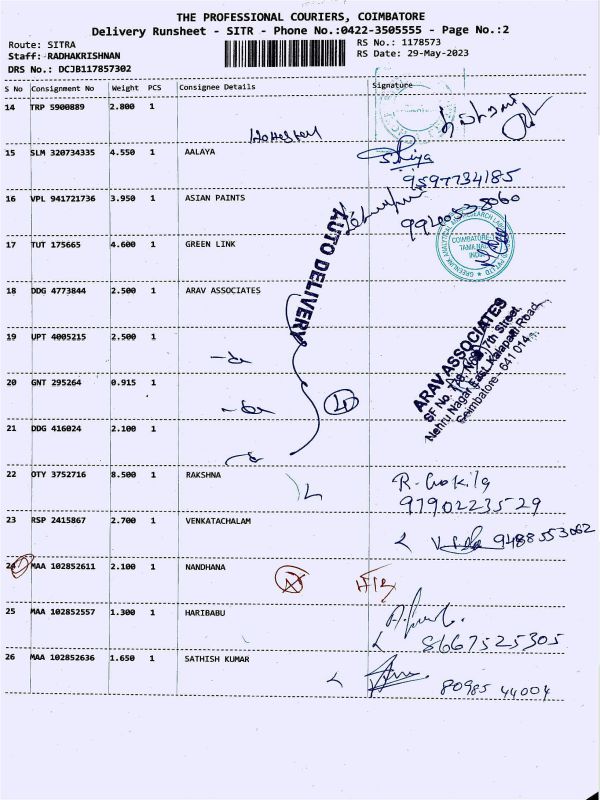 THE PROFESSIONAL COURIERS, COIMBATORE
Delivery Runsheet - SITR - Phone No.:0422-3505555 - Page No.:2
Route: SITRA
RS No.: 1178573
Staff: RADHAKRISHNAN
RS Date: 29-May-2023
DRS No.: DCJB117857302
S No Consignment No Weight PCS Consignee Details Signature
14 TRP 5900889 2.800 1
15 SLM 320734335 4.550 1 AALAYA
9597734185
16 VPL 941721736 3.950 1 ASIAN PAINTS
17 TUT 175665 4.600 1 GREEN LINK
COIMBATORE
TAMIL NADU
INDIA
AUTO DELIVERY
18 DDG 4773844 2.500 1 ARAV ASSOCIATES
ARAV ASSOCIATES
7th Street,
Nehru Nagar East, Kalapatti Road,
Coimbatore - 641 014
19 UPT 4005215 2.500 1
20 GNT 295264 0.915 1
21 DDG 416024 2.100 1
22 OTY 3752716 8.500 1 RAKSHNA
R. Gokila
9790223529
23 RSP 2415867 2.700 1 VENKATACHALAM
9488553062
24 MAA 102852611 2.100 1 NANDHANA
25 MAA 102852557 1.300 1 HARIBABU
8667525305
26 MAA 102852636 1.650 1 SATHISH KUMAR
80985 44004